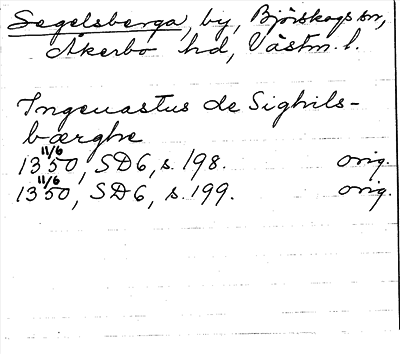 Segelsberga, by, Björskogs sn,
Åkerbo hd, Västm. l.
Ingeuastus de Sighils-
bærghe
1350 11/6, SD6, s. 198. orig.
1350 11/6, SD6, s. 199. orig.